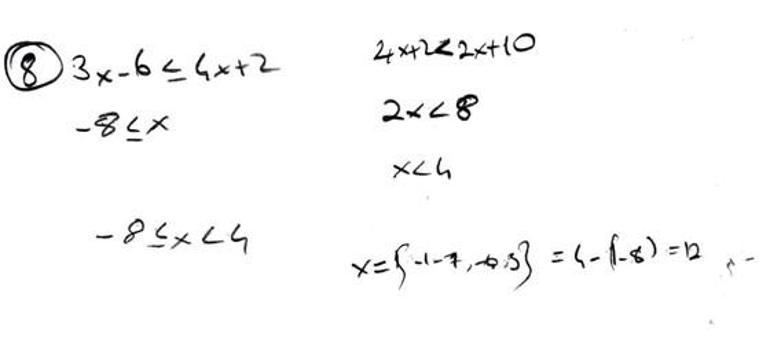 8 3x-6 ≤ 4x+2
-8 ≤ x
4x+2 < 2x+10
2x < 8
x < 4
-8 ≤ x < 4
x = { } = 4-(-8) = 12